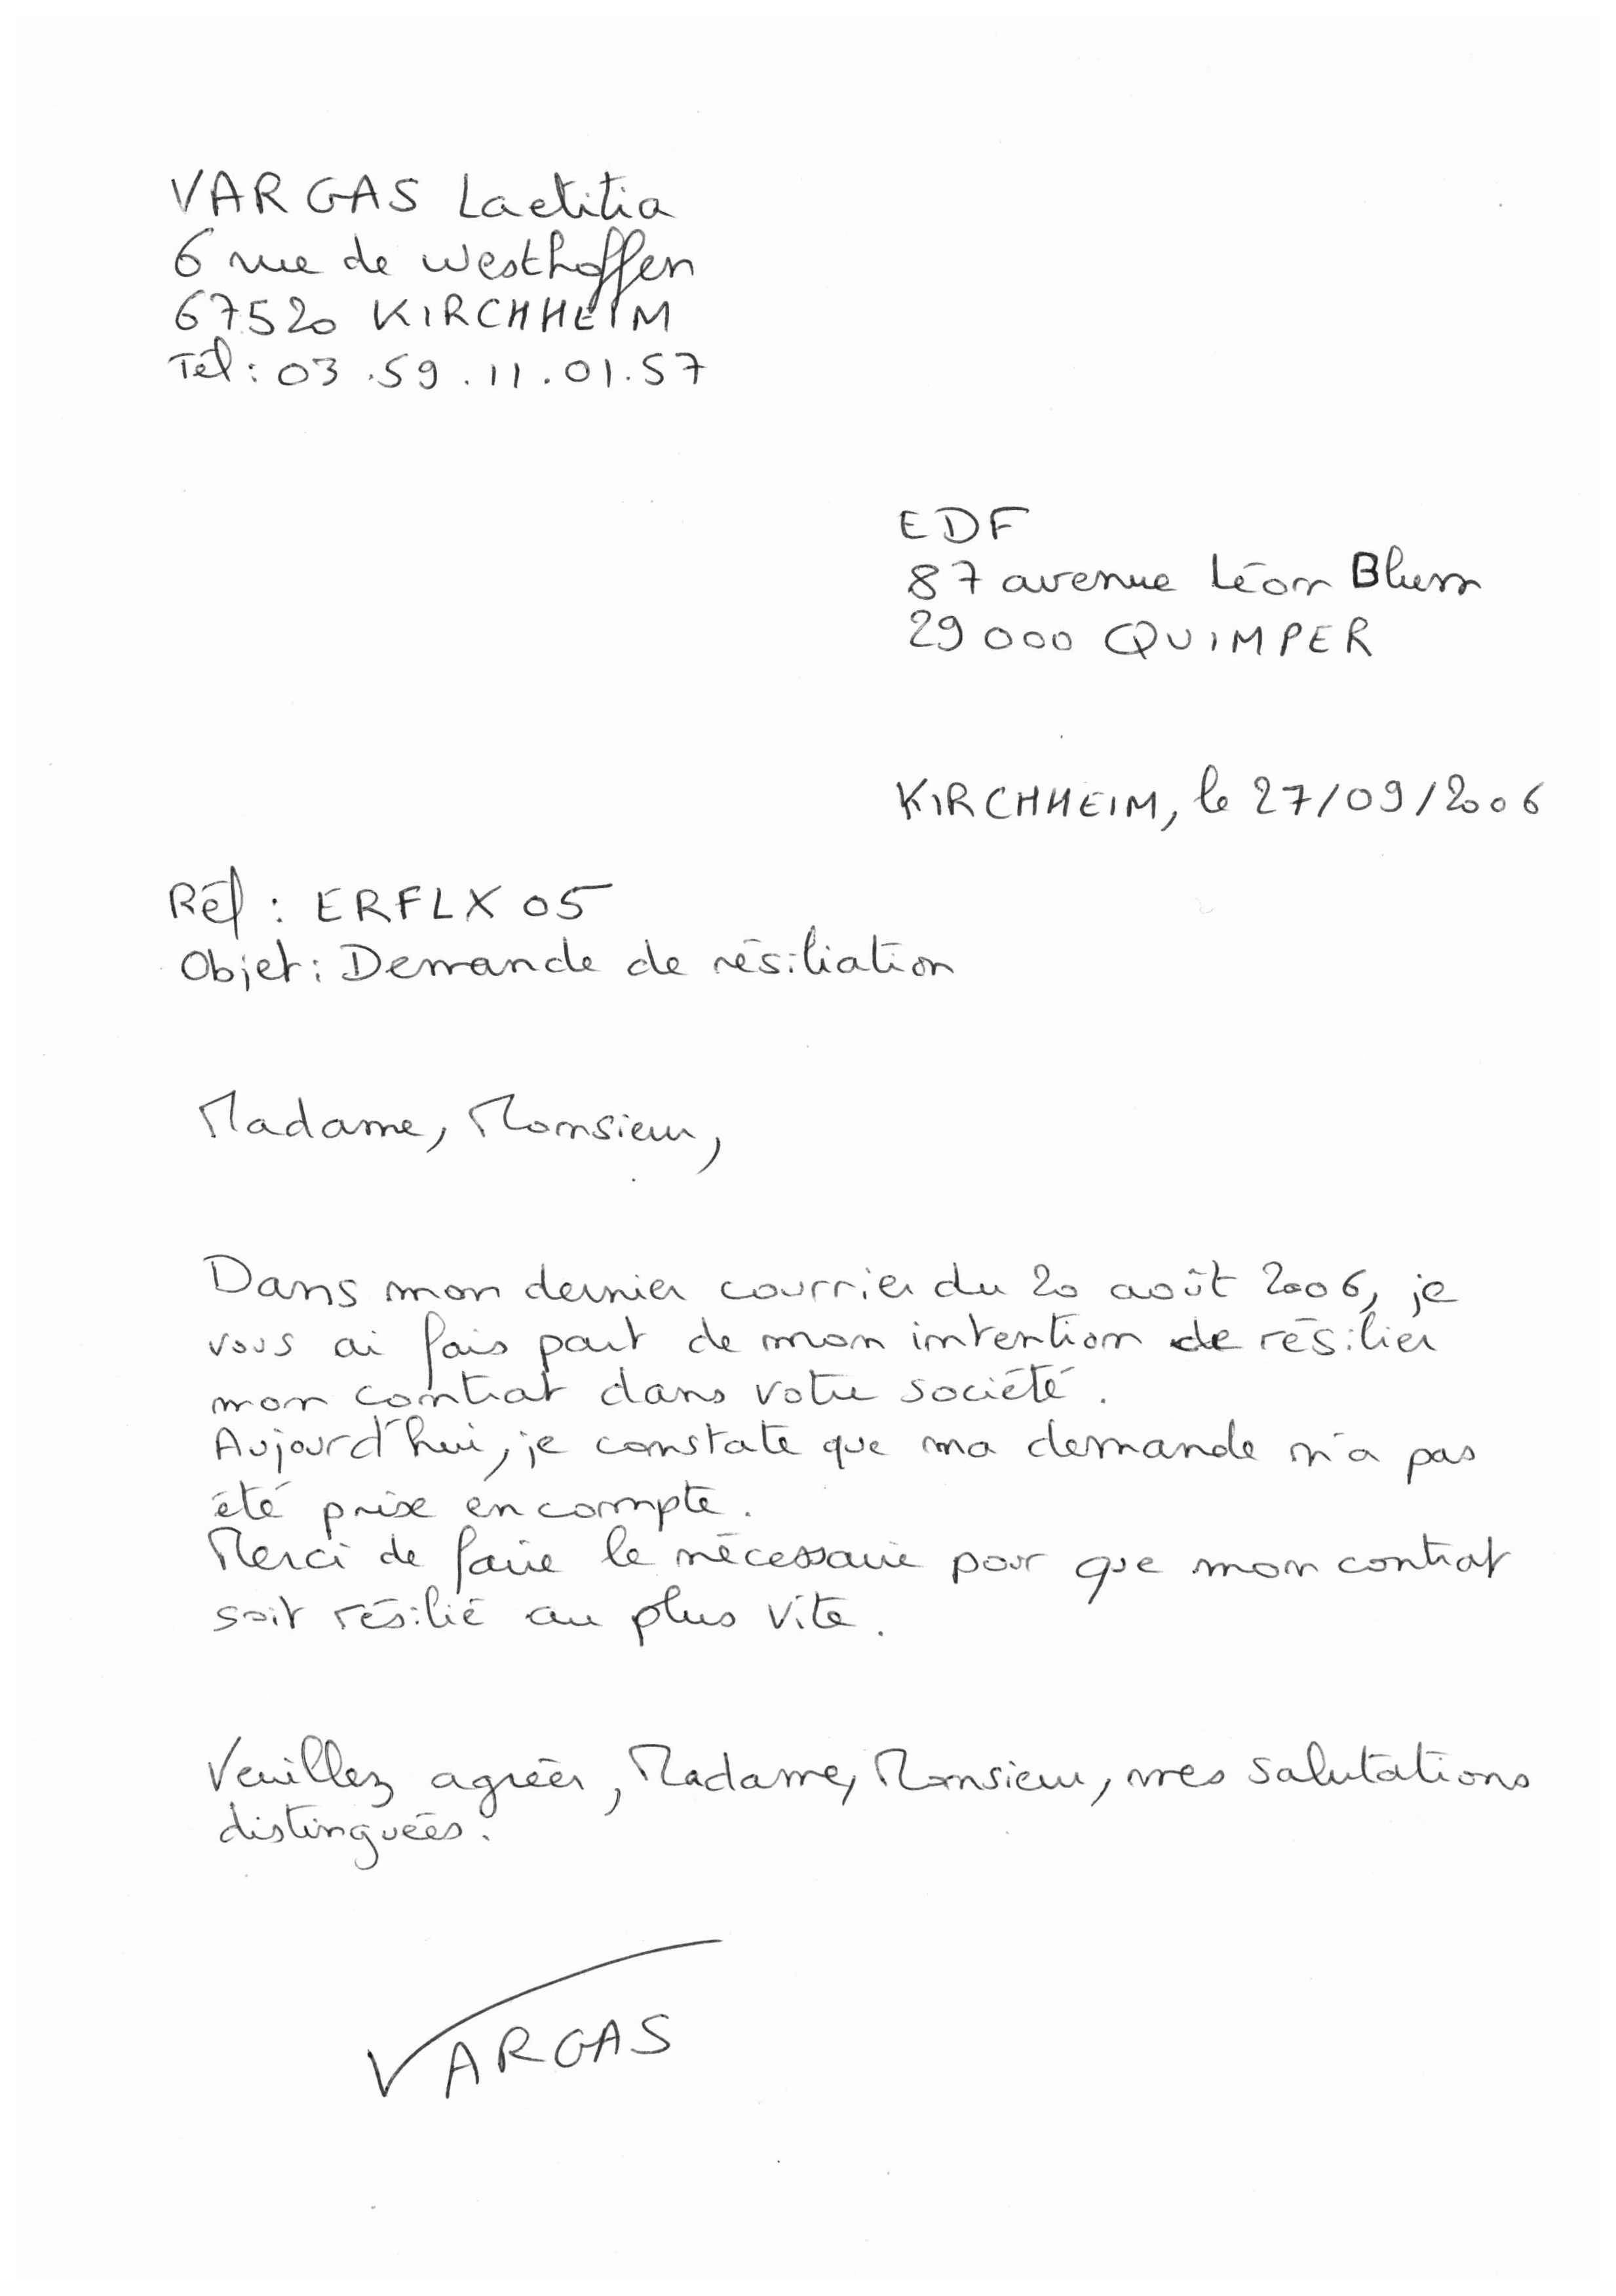 VARGAS Laetitia
6 rue de Westhoffen
67520 KIRCHHEIM
Tél : 03.59.11.01.57
EDF
87 avenue Léon Blum
29000 QUIMPER
KIRCHHEIM, le 27/09/2006
Réf : ERFLX05
Objet : Demande de résiliation
Madame, Monsieur,
Dans mon dernier courrier du 20 août 2006, je
vous ai fais part de mon intention de résilier
mon contrat dans votre société.
Aujourd'hui, je constate que ma demande n'a pas
été prise en compte.
Merci de faire le nécessaire pour que mon contrat
soit résilié au plus vite.
Veuillez agréer, Madame, Monsieur, mes salutations
distinguées.
VARGAS